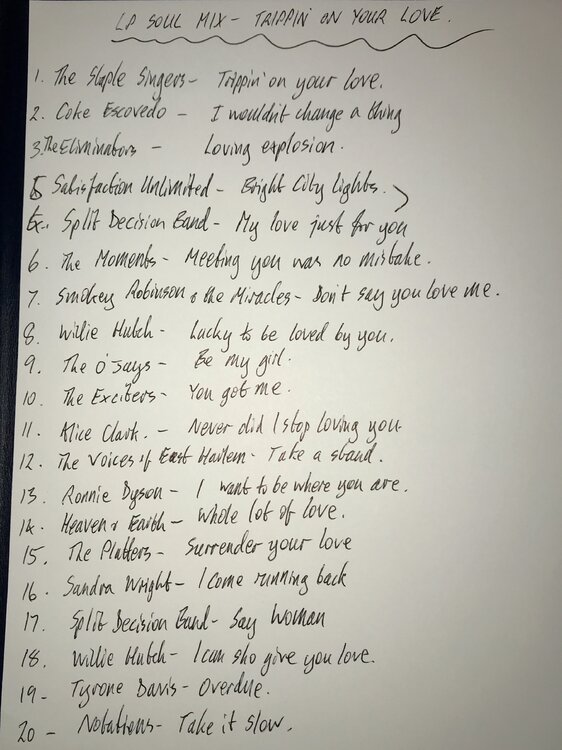 LP SOUL MIX - TRIPPIN' ON YOUR LOVE.
1. The Staple Singers - Trippin' on your love.
2. Coke Escovedo - I wouldn't change a thing
3. The Eliminators - Loving explosion.
5 Satisfaction Unlimited - Bright City lights.
Split Decision Band - My love just for you
6. The Moments - Meeting you was no mistake.
7. Smokey Robinson & the Miracles - Don't say you love me.
8. Willie Hutch - Lucky to be loved by you.
9. The O'Jays - Be my girl.
10. The Exciters - You got me.
11. Alice Clark. - Never did I stop loving you
12. The Voices of East Harlem - Take a stand.
13. Ronnie Dyson - I want to be where you are.
14. Heaven & Earth - Whole lot of love.
15. The Platters - Surrender your love
16. Sandra Wright - I come running back
17. Split Decision Band - Say Woman
18. Willie Hutch - I can sho give you love.
19 - Tyrone Davis - Overdue.
20 - Notations - Take it slow.